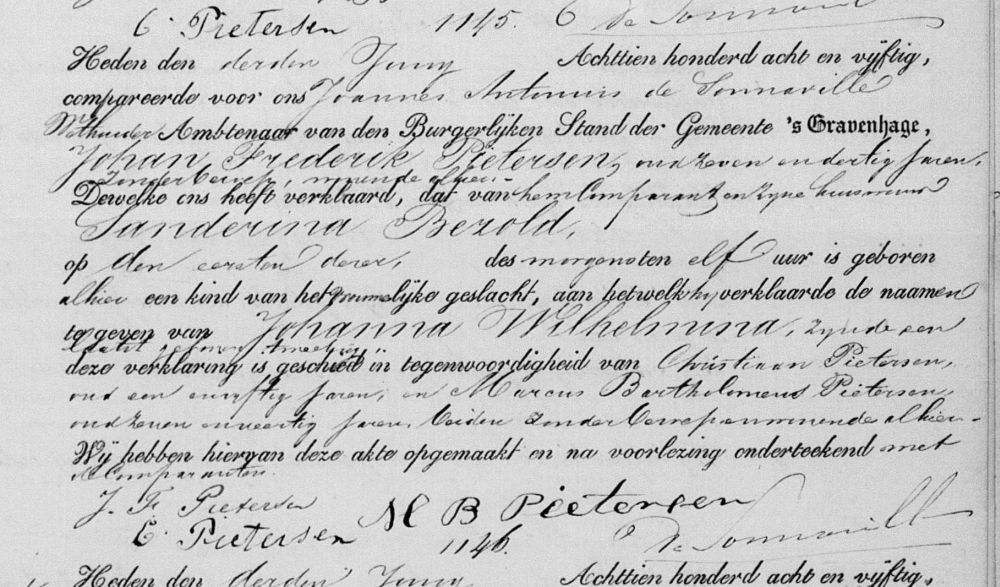 C Pietersen 1145. de Sonnaville
Heden den derden Juny Achttien honderd acht en vijftig,
compareerde voor ons Joannes Antonius de Sonnaville
Wethouder Ambtenaar van den Burgerlijken Stand der Gemeente 's Gravenhage,
Johan Frederik Pietersen, oud zeven en dertig Jaren,
zonder beroep, wonende alhier.-
Dewelke ons heeft verklaard, dat van hem Comparant en zijne huisvrouw
Sanderina Bezold,
op den eersten dezer, des morgens ten elf uur is geboren
alhier een kind van het vrouwelijke geslacht, aan hetwelk hij verklaarde de naamen
te geven van Johanna Wilhelmina, zijnde een
laatst geboren tweeling
deze verklaring is geschied in tegenwoordigheid van Christiaan Pietersen,
oud een en vijftig Jaren, en Marcus Bartholomeus Pietersen,
oud zeven en veertig Jaren, beiden zonder beroep en wonende alhier.-
Wij hebben hiervan deze akte opgemaakt en na voorlezing onderteekend met
de Comparanten.
J. F. Pietersen M B Pietersen
C. Pietersen 1146. de Sonnaville
Heden den derden Juny Achttien honderd acht en vijftig,